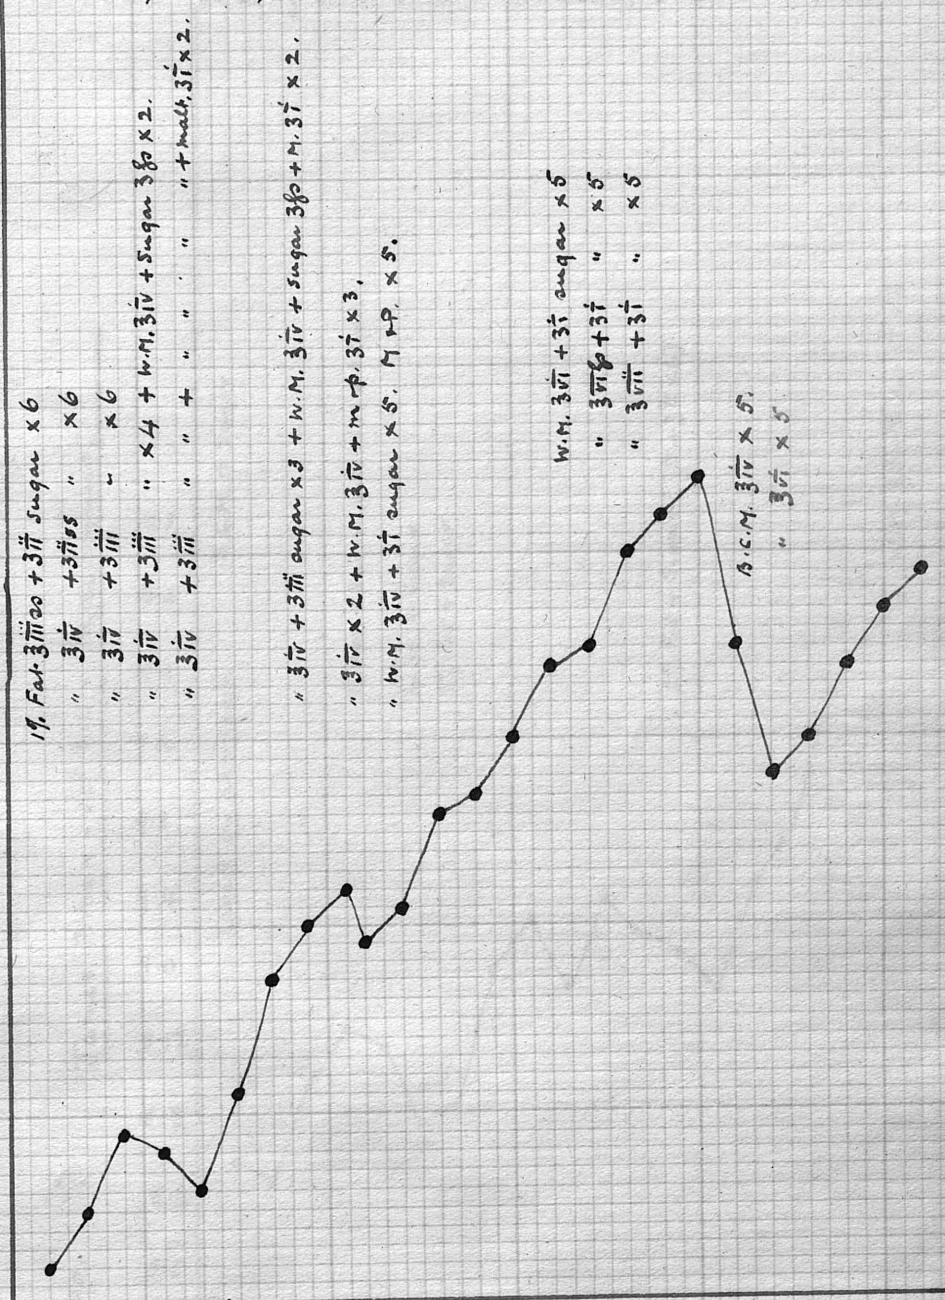 1%. Fat. ʒiiiss + ʒii sugar × 6
" ʒiv + ʒiiss " × 6
" ʒiv + ʒiii " × 6
" ʒiv + ʒiii " × 4 + W.M. ʒiv + Sugar ʒß × 2.
" ʒiv + ʒiii " " + " " " " + malt. ʒi × 2.
" ʒiv + ʒiii sugar × 3 + W.M. ʒiv + sugar ʒß + M. ʒi × 2.
" ʒiv × 2 + W.M. ʒiv + m p. ʒi × 3.
" W.M. ʒiv + ʒi sugar × 5. M P. × 5.
W.M. ʒvi + ʒi sugar × 5
" ʒviß + ʒi " × 5
" ʒvii + ʒi " × 5
B.C.M. ʒiv × 5.
" ʒvi × 5